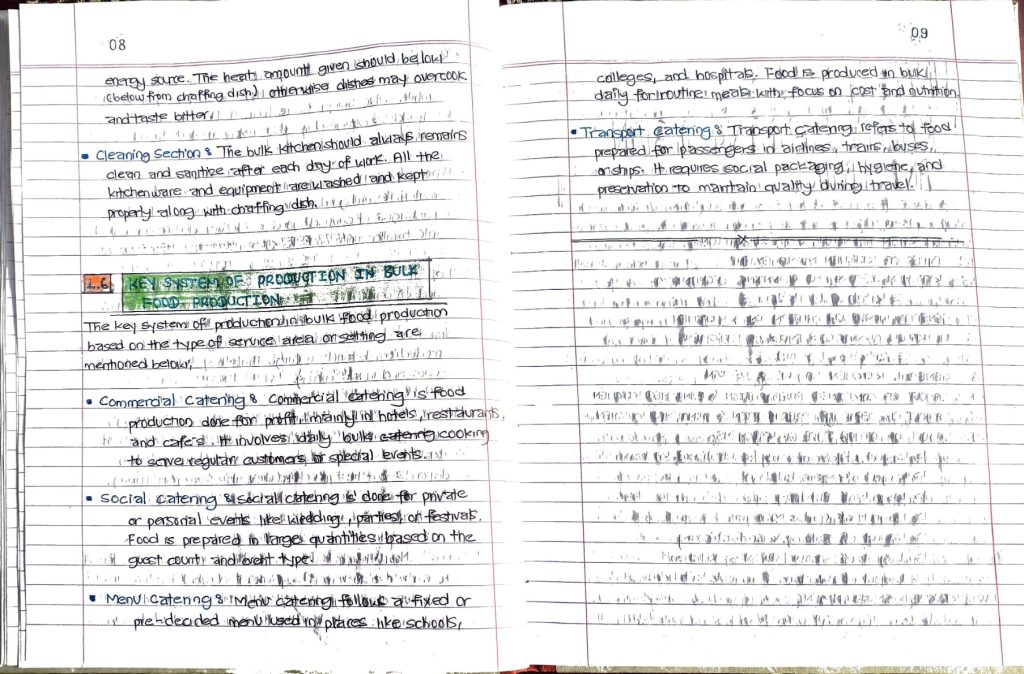 08
energy source. The heat amount given should be low
(below from chaffing dish) otherwise dishes may overcook
and taste bitter.
• Cleaning Section : The bulk kitchen should always remains
clean and sanitize after each day of work. All the
kitchenware and equipment are washed and kept
properly along with chaffing dish.
1.6 KEY SYSTEM OF PRODUCTION IN BULK
FOOD PRODUCTION
The key system of production in bulk food production
based on the type of service area or setting are
mentioned below;
• Commercial Catering : Commercial catering is food
production done for profit, mainly in hotels, restaurants
and cafe's. It involves daily bulk catering cooking
to serve regular customers or special events.
• Social Catering : Social catering is done for private
or personal events like wedding, parties, or festivals.
Food is prepared in large quantities based on the
guest count and event type.
• Menu Catering : Menu catering follows a fixed or
pre-decided menu used in places like schools,
09
colleges, and hospitals. Food is produced in bulk
daily for routine meals with focus on cost and nutrition.
• Transport Catering : Transport Catering refers to food
prepared for passengers in airlines, trains, buses,
or ships. It requires social packaging, hygiene, and
preservation to mantain quality during travel.